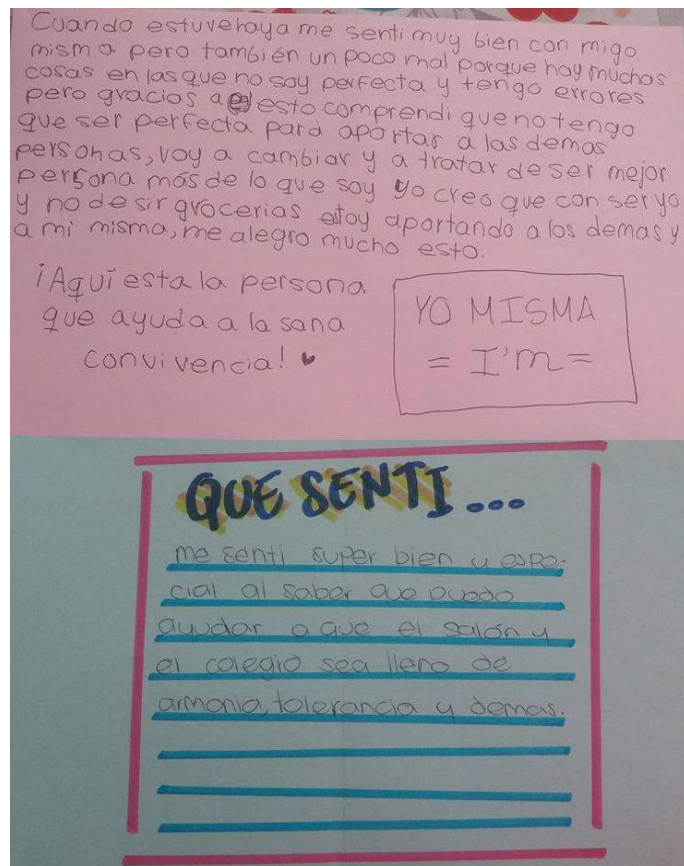 Cuando estuve haya me senti muy bien con migo
misma pero también un poco mal porque hay muchas
cosas en las que no soy perfecta y tengo errores
pero gracias a esto comprendi que no tengo
que ser perfecta para aportar a las demas
personas, voy a cambiar y a tratar de ser mejor
persona más de lo que soy yo creo que con ser yo
y no desir grocerias estoy aportando a los demas y
a mi misma, me alegro mucho esto.
¡Aquí esta la persona
que ayuda a la sana
convivencia!
YO MISMA
= I'm =
QUE SENTI...
me senti super bien y espe-
cial al saber que puedo
ayudar a que el salón y
el colegio sea lleno de
armonia, tolerancia y demas.